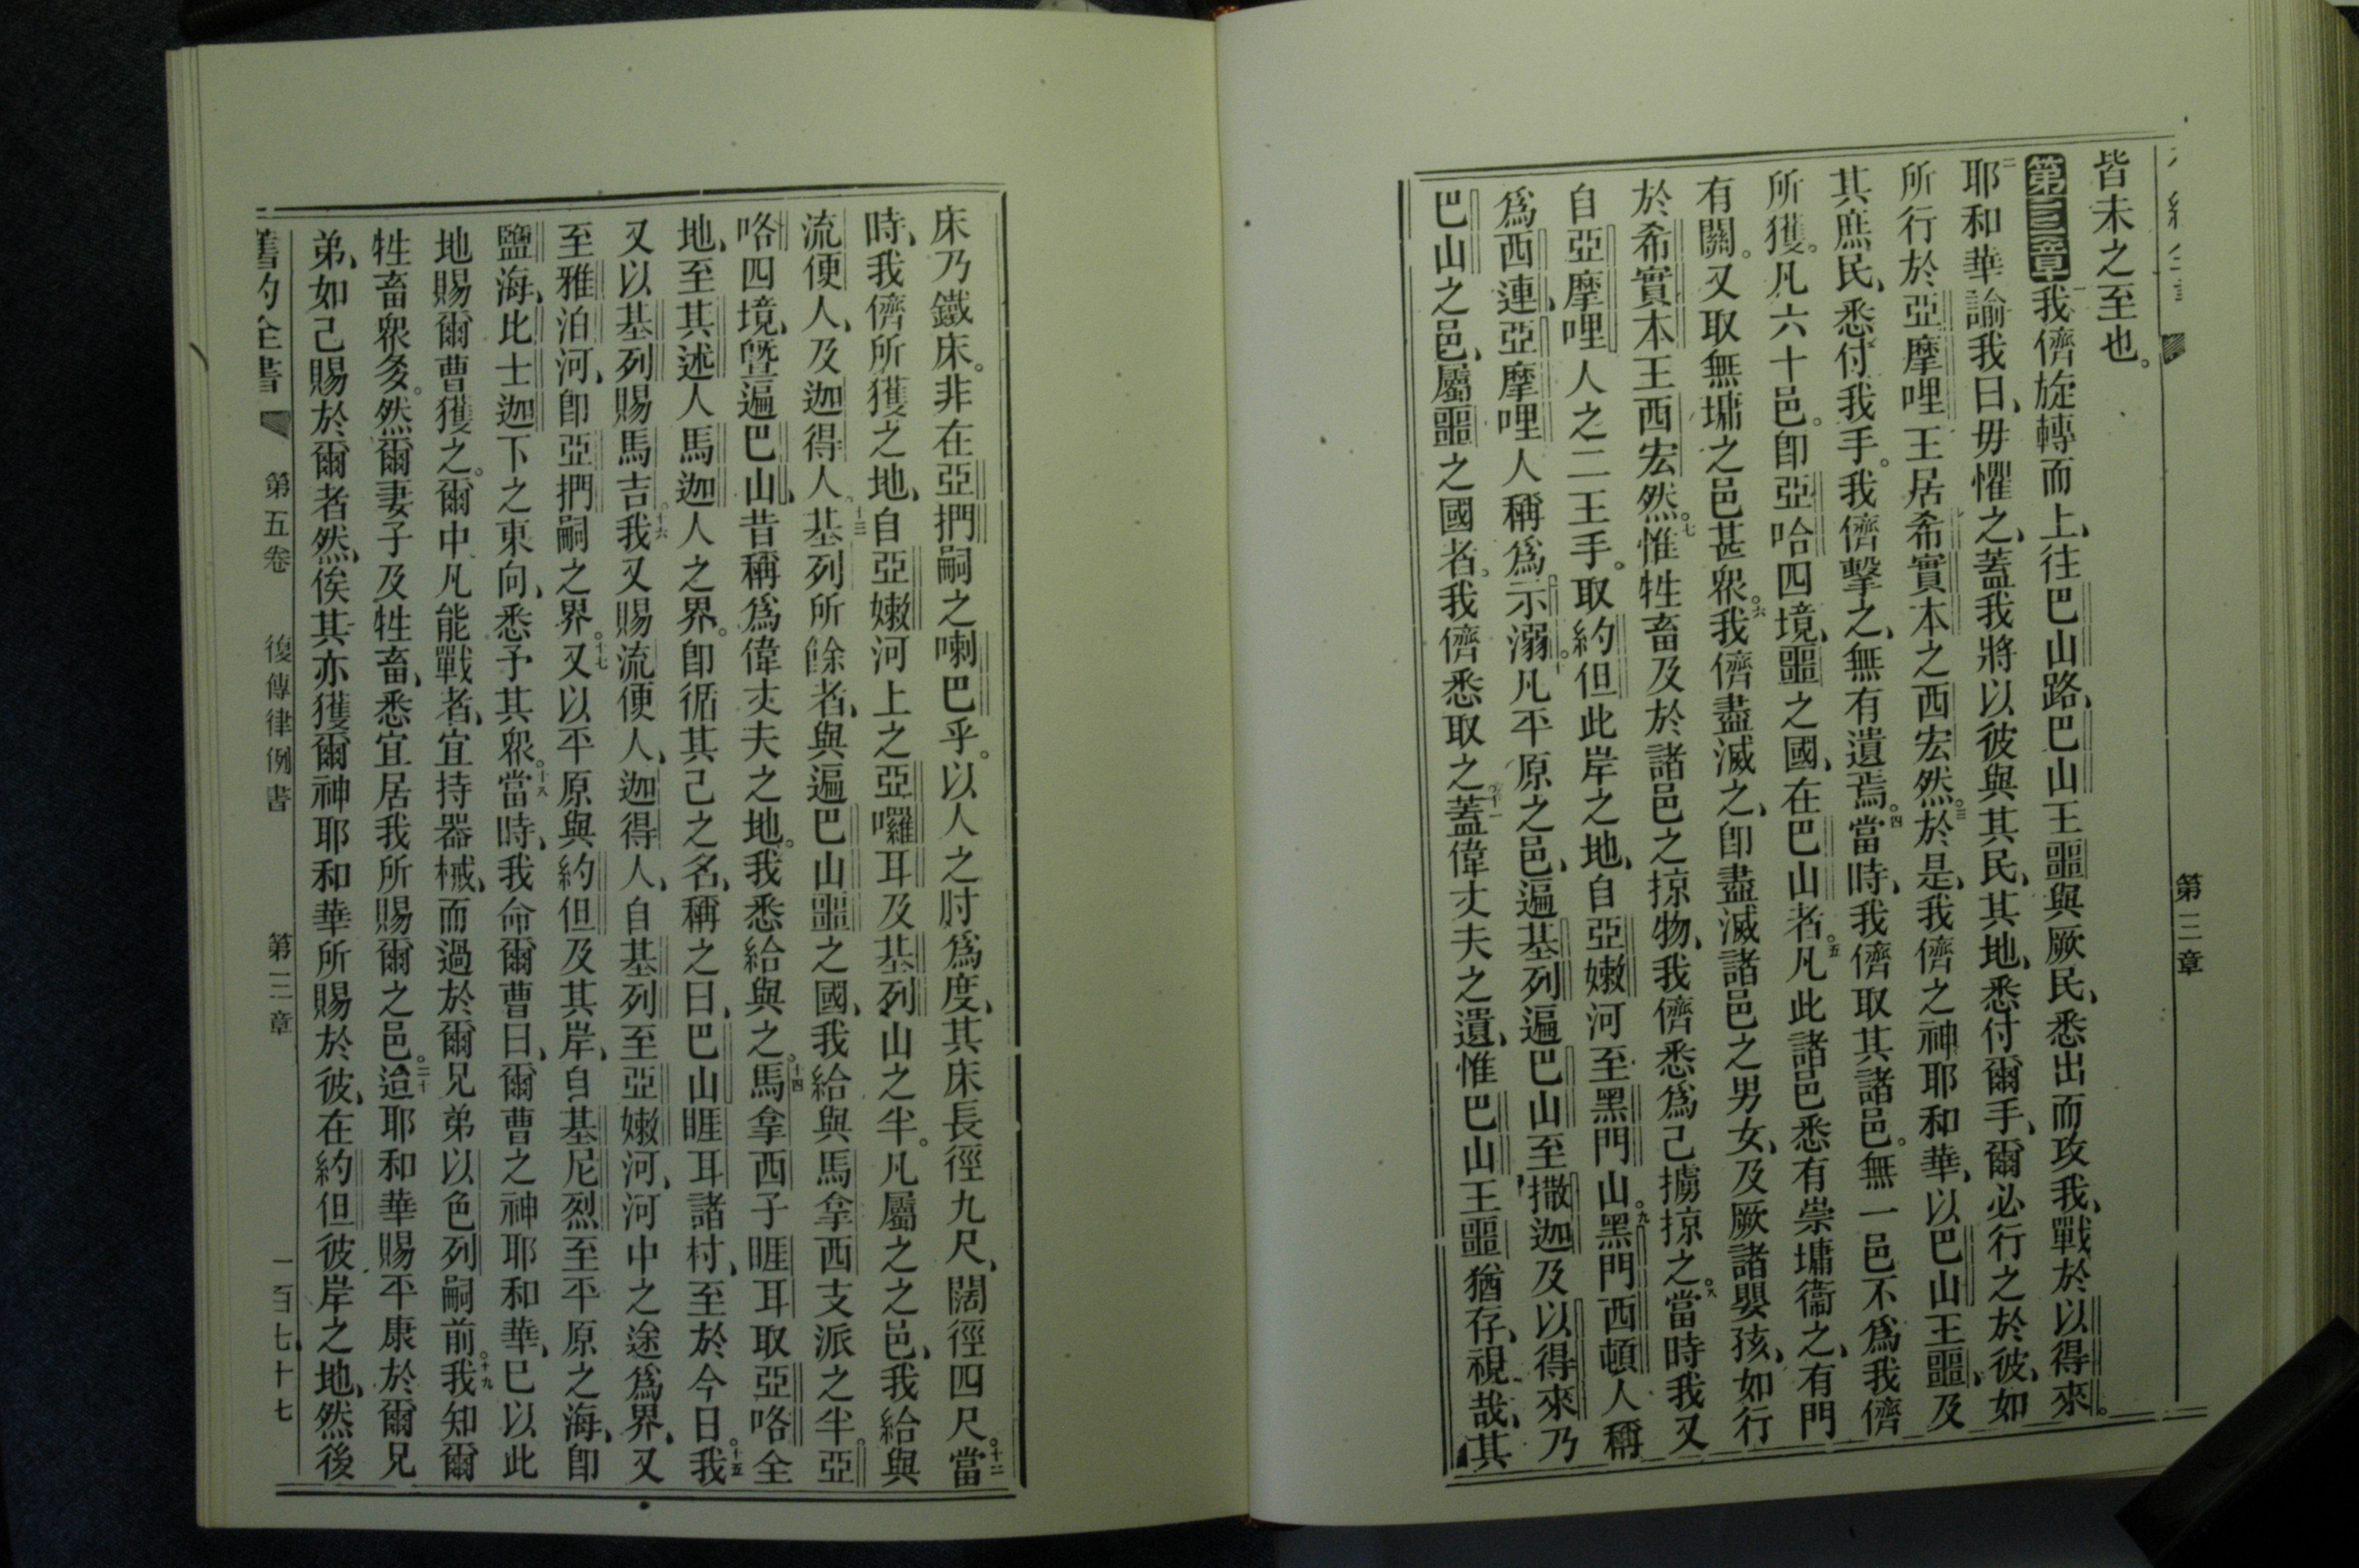 第三章
皆未之至也。
第三章 一我儕旋轉而上、往巴山路、巴山王噩與厥民、悉出而攻我、戰於以得來。
二耶和華諭我曰、毋懼之、蓋我將以彼與其民、其地、悉付爾手、爾必行之於彼、如
所行於亞摩哩王居希實本之西宏然。三於是、我儕之神耶和華、以巴山王噩、及
其庶民、悉付我手。我儕擊之、無有遺焉。四當時、我儕取其諸邑。無一邑不爲我儕
所獲。凡六十邑。卽亞哈四境、噩之國、在巴山者。五凡此諸邑悉有崇墉衞之、有門
有關。又取無墉之邑甚衆。六我儕盡滅之、卽盡滅諸邑之男女、及厥諸嬰孩、如行
於希實本王西宏然。七惟牲畜及於諸邑之掠物、我儕悉爲己擄掠之。八當時我又
自亞摩哩人之二王手。取約但此岸之地、自亞嫩河至黑門山。九黑門西頓人稱
爲西連、亞摩哩人稱爲示溺。十凡平原之邑、遍基列遍巴山至撒迦及以得來乃
巴山之邑、屬噩之國者。我儕悉取之。十一蓋偉丈夫之遺、惟巴山王噩猶存、視哉、其
床乃鐵床。非在亞捫嗣之喇巴乎。以人之肘爲度、其床長徑九尺、闊徑四尺。十二當
時、我儕所獲之地、自亞嫩河上之亞囉耳及基列山之半。凡屬之之邑、我給與
流便人、及迦得人。十三基列所餘者、與遍巴山噩之國、我給與馬拿西支派之半。亞
咯四境、曁遍巴山、昔稱爲偉丈夫之地。我悉給與之。十四馬拿西子睚耳取亞咯全
地、至其述人馬迦人之界。卽循其己之名、稱之曰、巴山睚耳諸村、至於今日。十五我
又以基列賜馬吉。十六我又賜流便人、迦得人、自基列至亞嫩河、河中之途爲界、又
至雅泊河、卽亞捫嗣之界。十七又以平原與約但及其岸、自基尼烈至平原之海、卽
鹽海、比士迦下之東向、悉予其衆。十八當時、我命爾曹曰、爾曹之神耶和華、已以此
地賜爾曹獲之。爾中凡能戰者、宜持器械、而過於爾兄弟以色列嗣前。十九我知爾
牲畜衆多。然爾妻子及牲畜、悉宜居我所賜爾之邑。二十迨耶和華賜平康於爾兄
弟、如己賜於爾者然、俟其亦獲爾神耶和華所賜於彼、在約但彼岸之地、然後
舊約全書 第五卷 復傳律例書 第三章 一百七十七